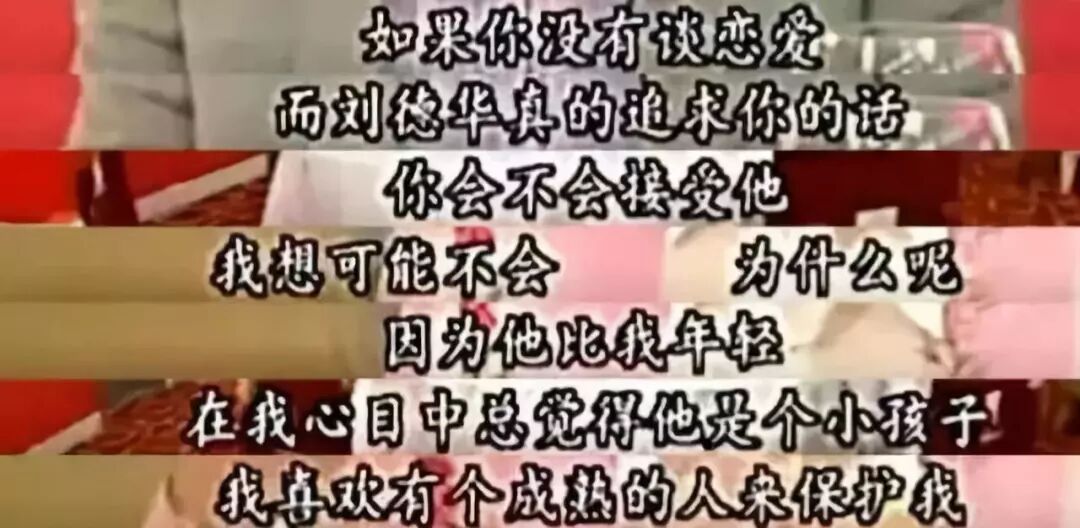 如果你没有谈恋爱
而刘德华真的追求你的话
你会不会接受他
我想可能不会 为什么呢
因为他比我年轻
在我心目中总觉得他是个小孩子
我喜欢有个成熟的人来保护我